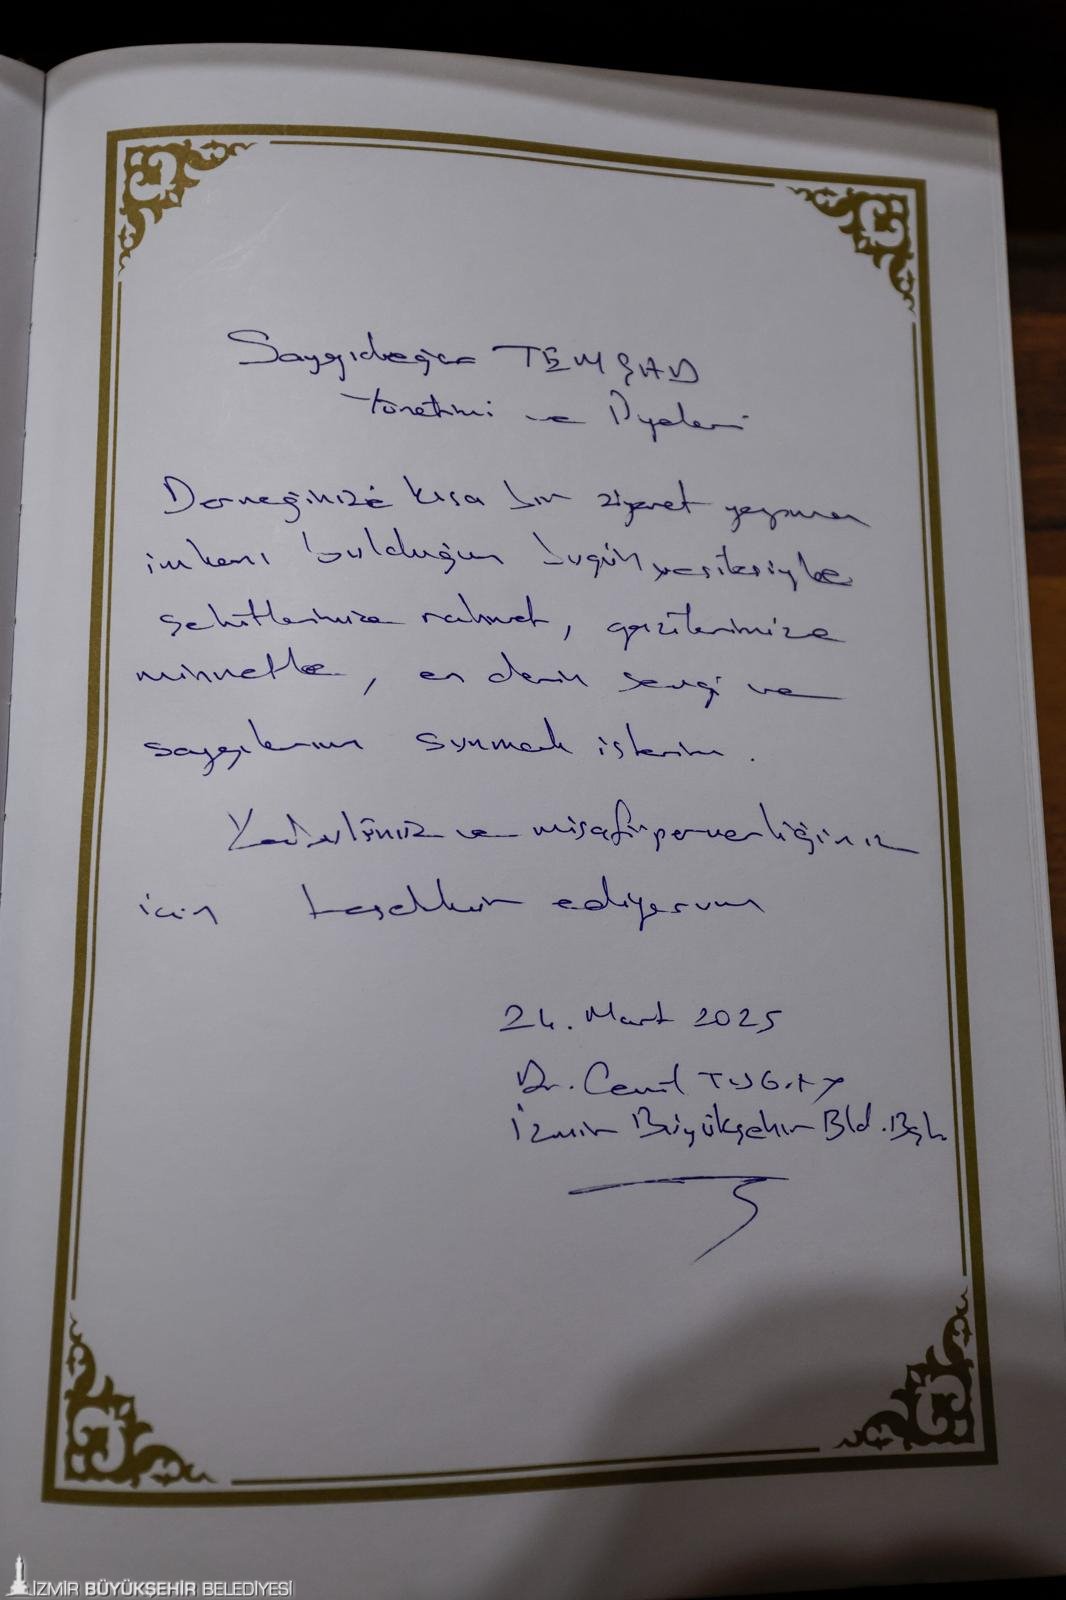 Saygıdeğer TEMŞAD
Yönetimi ve Üyeleri
Derneğinize kısa bir ziyaret yapma
imkanı bulduğum bugün vesilesiyle
şehitlerimize rahmet, gazilerimize
minnetle, en derin sevgi ve
saygılarımı sunmak isterim.
ve misafirperverliğiniz
için teşekkür ediyorum
24. Mart 2025
Dr. Cemil TUGAY
İzmir Büyükşehir Bld. Bşk.
İZMİR BÜYÜKŞEHİR BELEDİYESİ